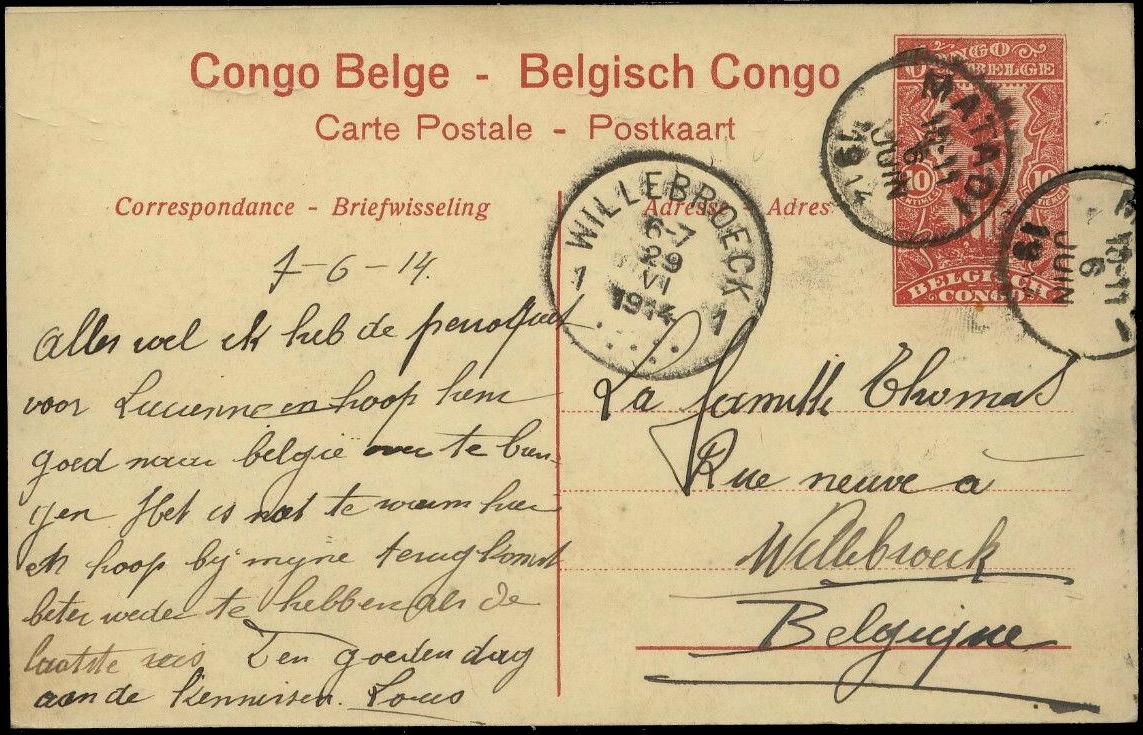 Congo Belge - Belgisch Congo
Carte Postale - Postkaart
Correspondance - Briefwisseling
Adresse Adres
CONGO BELGE
10 10
BELGISCH CONGO
MATADI
10-11
6
JUIN
1914
10-11
6
JUIN
19
WILLEBROECK
6-7
29
VI
1914
1 1
7-6-14.
Alles wel ik heb de perroquet
voor Lucienne en hoop hem
goed naar belgie over te bren-
gen Het is niet te warm hier
ik hoop bij mijne terugkomst
beter weder te hebben als de
laatste reis Den goeden dag
aan de Kennissen. Louis
La famille Thomas
Rue neuve à
Willebroeck
Belgique